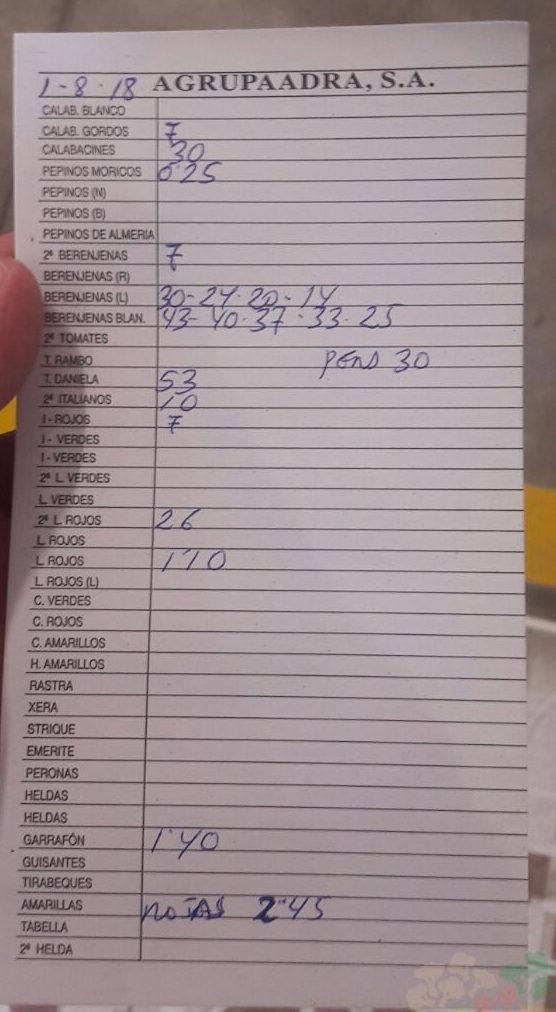 1-8-18 AGRUPAADRA, S.A.
CALAB. BLANCO
CALAB. GORDOS 7
CALABACINES 30
PEPINOS MORICOS 0'25
PEPINOS (N)
PEPINOS (B)
PEPINOS DE ALMERIA
2ª BERENJENAS 7
BERENJENAS (R)
BERENJENAS (L) 30-24-20-14
BERENJENAS BLAN. 43-40-37-33-25
2ª TOMATES
T. RAMBO PERA 30
T. DANIELA 53
2ª ITALIANOS 10
I - ROJOS 7
I - VERDES
I - VERDES
2ª L. VERDES
L. VERDES
2ª L. ROJOS 26
L. ROJOS
L. ROJOS 1'10
L. ROJOS (L)
C. VERDES
C. ROJOS
C. AMARILLOS
H. AMARILLOS
RASTRA
XERA
STRIQUE
EMERITE
PERONAS
HELDAS
HELDAS
GARRAFÓN 1'40
GUISANTES
TIRABEQUES
AMARILLAS ROJAS 2'45
TABELLA
2ª HELDA